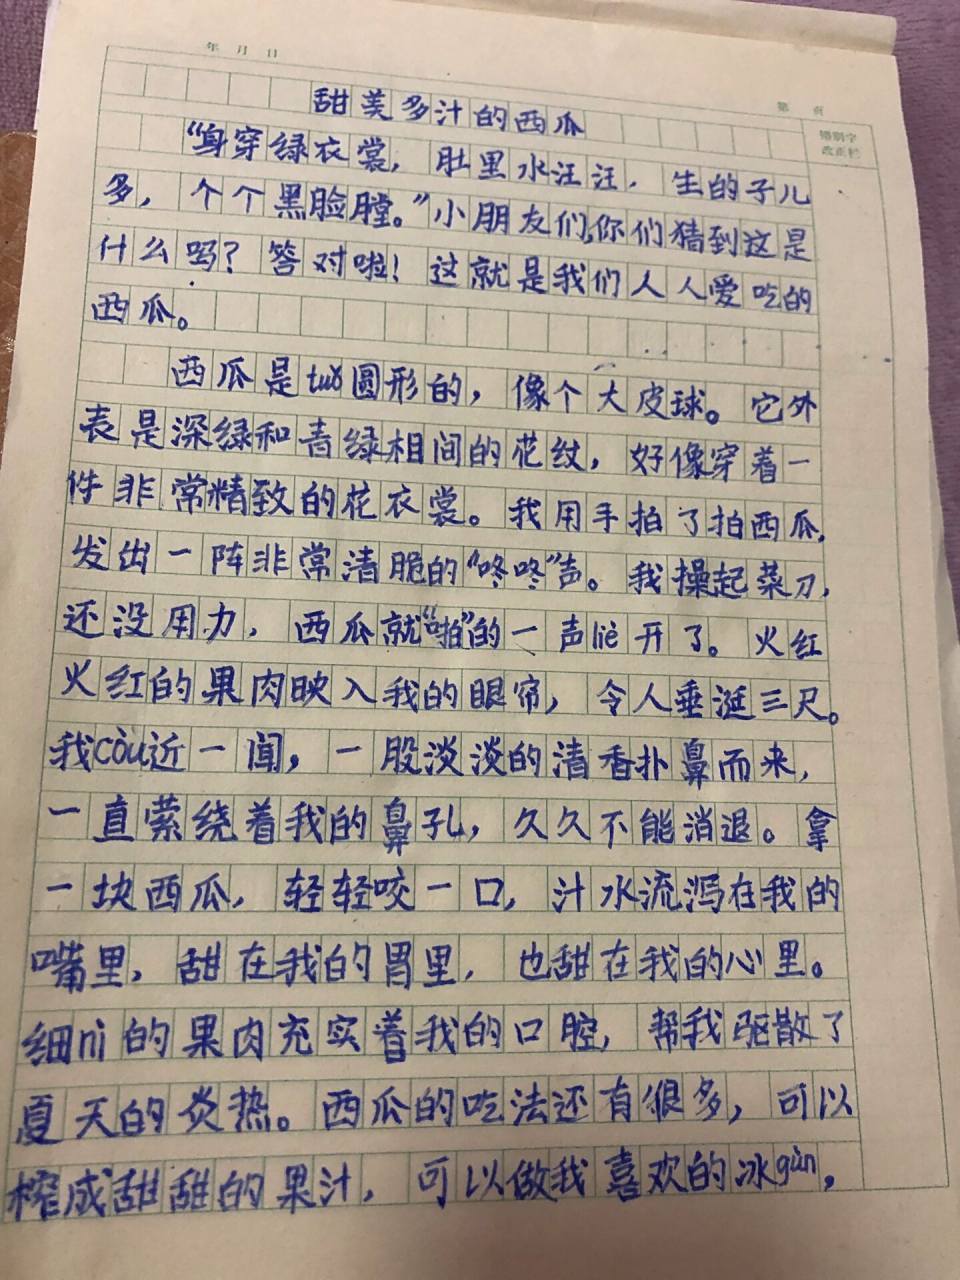 年 月 日
第 页
错别字
改正栏
甜美多汁的西瓜
“身穿绿衣裳，肚里水汪汪，生的子儿
多，个个黑脸膛。”小朋友们，你们猜到这是
什么吗？答对啦！这就是我们人人爱吃的
西瓜。
西瓜是tuǒ圆形的，像个大皮球。它外
表是深绿和青绿相间的花纹，好像穿着一
件非常精致的花衣裳。我用手拍了拍西瓜，
发出一阵非常清脆的“咚咚”声。我操起菜刀，
还没用力，西瓜就“啪”的一声liè开了。火红
火红的果肉映入我的眼帘，令人垂涎三尺。
我còu近一闻，一股淡淡的清香扑鼻而来，
一直萦绕着我的鼻孔，久久不能消退。拿
一块西瓜，轻轻咬一口，汁水流泻在我的
嘴里，甜在我的胃里，也甜在我的心里。
细nì的果肉充实着我的口腔，帮我驱散了
夏天的炎热。西瓜的吃法还有很多，可以
榨成甜甜的果汁，可以做我喜欢的冰gùn，